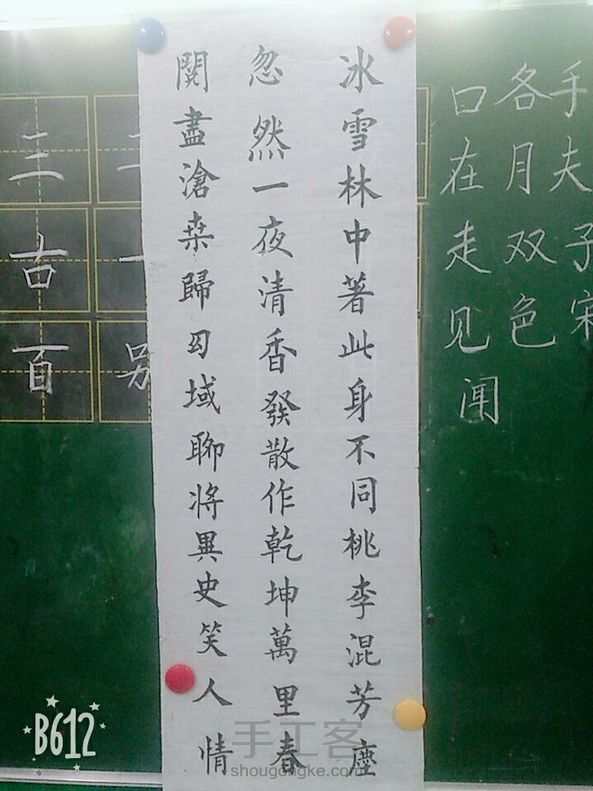 手夫子宋
各月双色
口在走见闻
冰雪林中著此身不同桃李混芳塵
忽然一夜清香發散作乾坤萬里春
盡滄桒歸域聊將異史笑人情
三古百
B612
手工客
shougongke.com